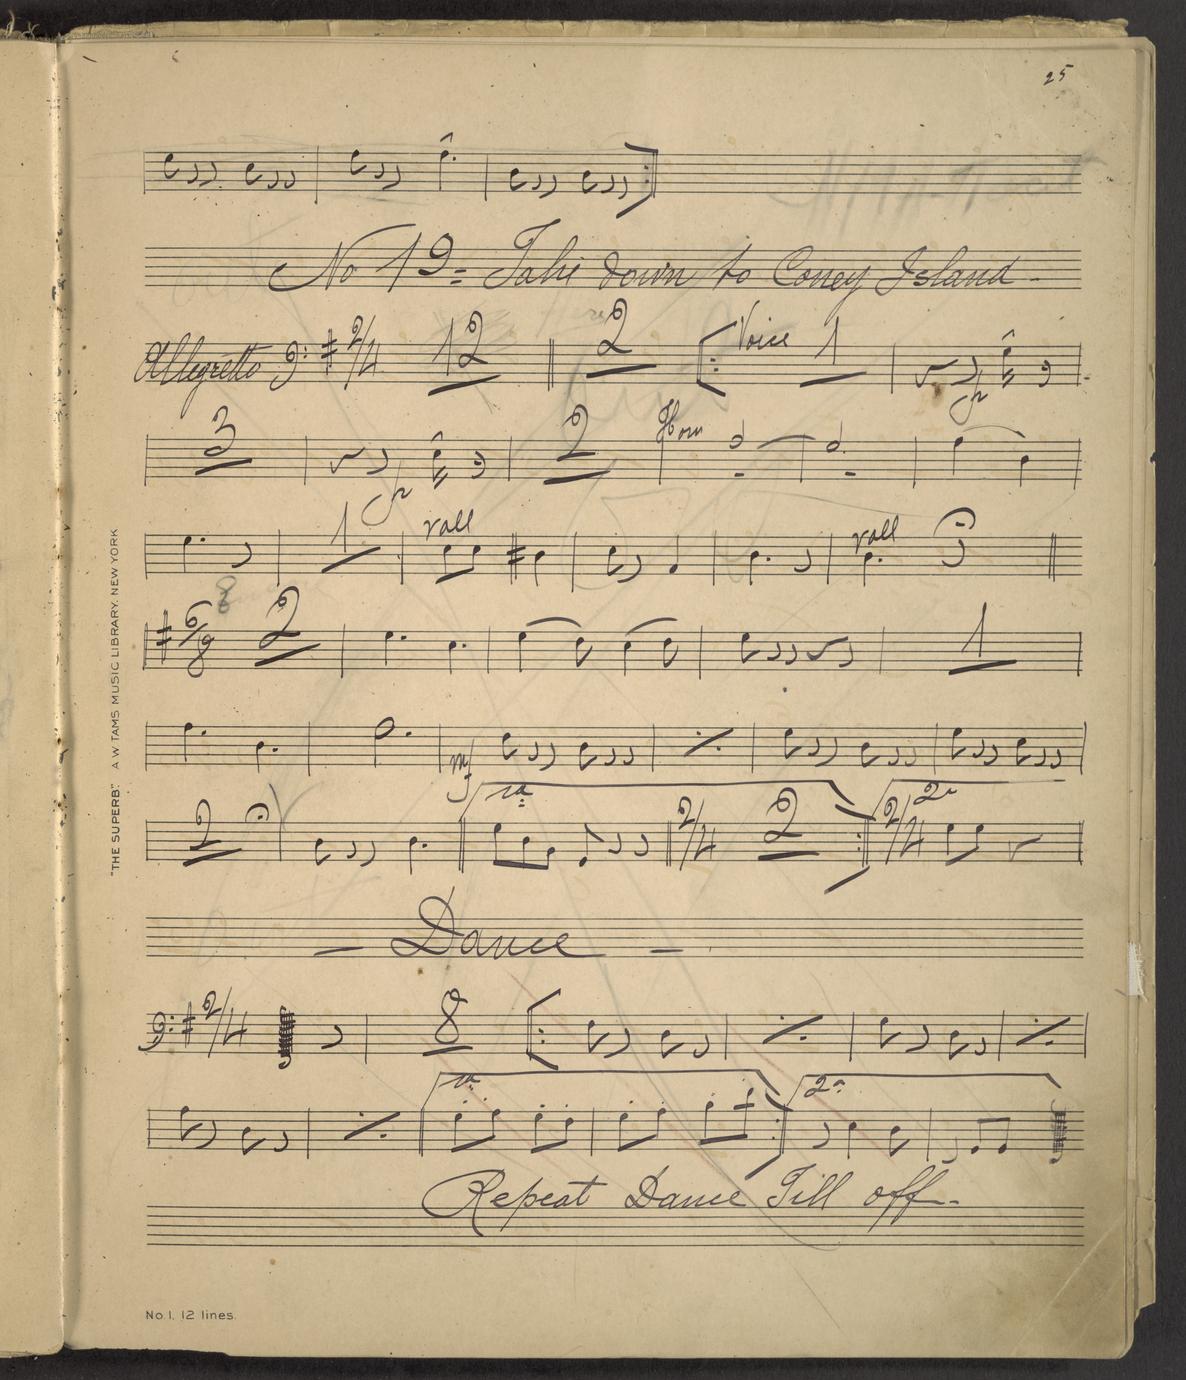 25
No 19 = Take down to Coney Island -
Allegretto 2/4 12 2 Voice 1
3 2 Horn
1 rall rall
6/8 2 1
mf
2 1a 2/4 2 2/4 2a
- Dance -
2/4 8
1a 2a
Repeat Dance Till off -
"THE SUPERB" A W TAMS MUSIC LIBRARY. NEW YORK
No. 1. 12 lines.